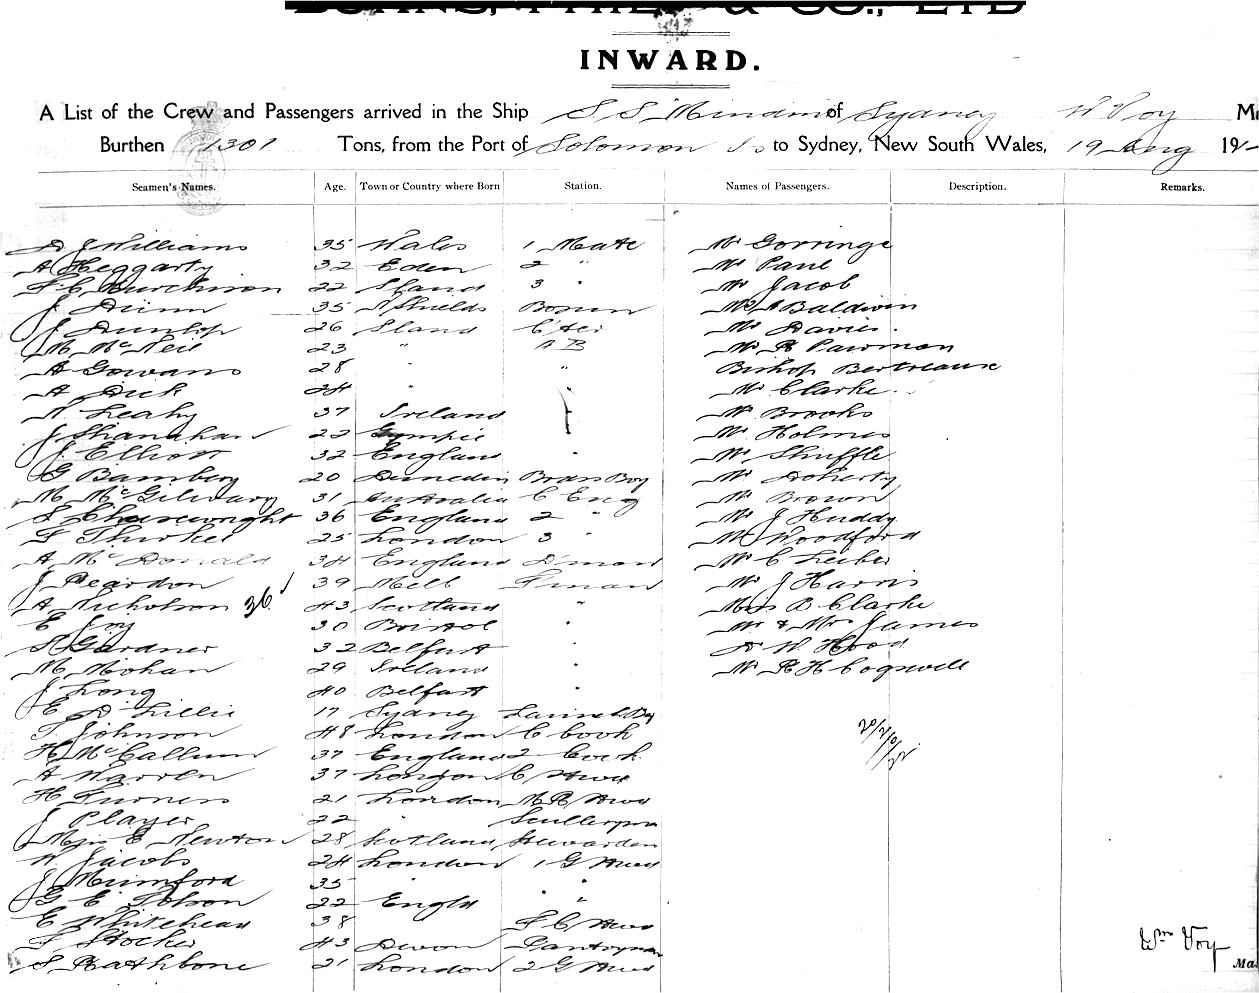 BURNS, PHILP & CO., LTD
INWARD.
A List of the Crew and Passengers arrived in the Ship S S Mindini of Sydney W Voy
Burthen 1301 Tons, from the Port of Solomon Is to Sydney, New South Wales, 19 Aug 191
Seamen's Names. Age. Town or Country where Born Station. Names of Passengers. Description. Remarks.
D J Williams 35 Wales 1 Mate Mr Gorringe
A Heggarty 32 Eden 2 " Mr Paul
F C Murchison 22 S'land 3 " Mr Jacob
J Dunn 35 N Shields Bosun Baldwin
J Dunlop 26 S'land Mr Davies.
M McNeil 23 " A B Mr R Pawman
A Gowans 28 " " Bishop Bertreaux
A Dick 24 " Mr Clarke
N Leahy 37 Ireland Mr Brooks
J Shanahan 22 Gympie Mr Holmes
J Elliott 32 England " Mr Shuffle
G Bamberg 20 Dunedin Brass Boy Mr Doherty
M McGilvary 31 Australia C Eng Mr Brown
36 England 2 " Mr J Huddy
25 London 3 " Mr Woodford
A McDonald 34 England D'man Mr C Leiber
J Peardon 39 Melb F'man Mr J Harris
A Nicholson 36 43 Scotland " Miss B Clarke
E Joy 30 Bristol " Mr & Mrs James
Gardner 32 Belfast " D W Hood
M Mohan 29 Ireland " Mr R H Cogswell
J Long 40 Belfast "
E D Lillie 17 Sydney Boy
T Johnson 48 London C Cook
H McCallum 37 England 2 Cook
A Warren 37 London C Stwd
H Turner 21 London Stwd
J Player 22 " Sculleryman
Miss E Newton 28 Scotland Stewardess
W Jacobs 24 London 1 G Stwd
J Mumford 35 " "
G E Tolson 22 Engld "
E Whitehead 38 F C Stwd
F Stocker 43 Devon Pantryman
S Rathbone 21 London 2 G Stwd
Wm Voy
Ma